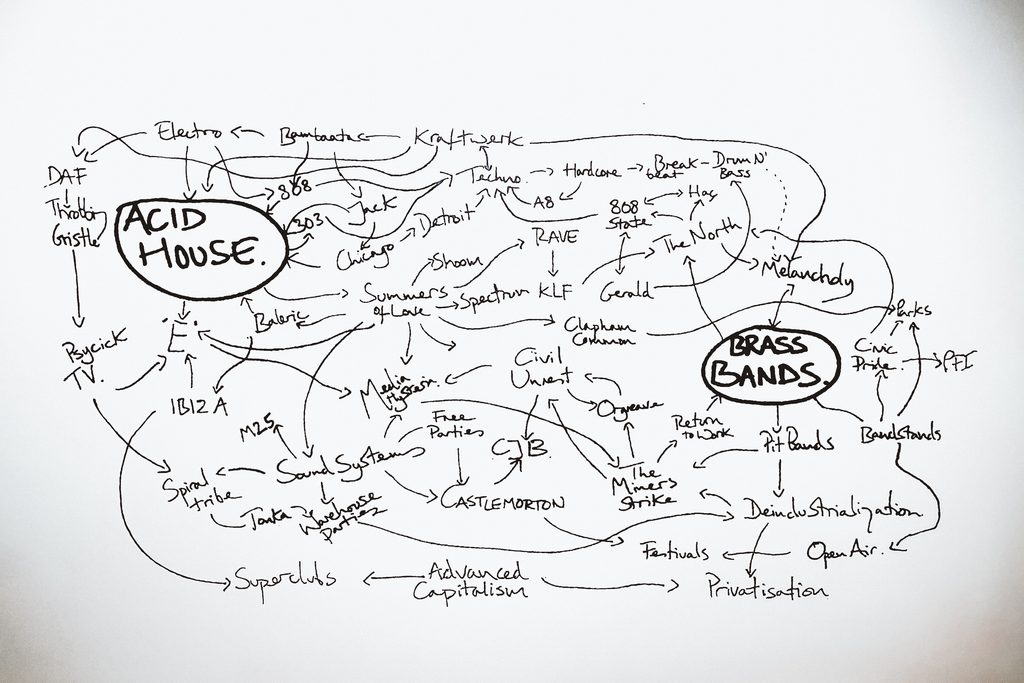 Electro
Bambaataa
Kraftwerk
DAF
808
Techno
Hardcore
Break-
beat
Drum N'
Bass
Throbbin
Gristle
ACID
HOUSE.
303
Jack
Detroit
A8
808
State
Hac
Chicago
RAVE
The North
Shoom
Melancholy
Summers
of Love
Spectrum
KLF
Gerald
Baleric
Clapham
Common
Parks
'E'.
Psycick
TV.
Civil
Unrest
BRASS
BANDS.
Civic
Pride.
PFI
Media
Hysteria.
IBIZA
Orgreave
M25
Free
Parties
Return
to Work
CJB.
Pit Bands
Bandstands
Sound Systems
The
Miners
Strike
Spiral
tribe
CASTLEMORTON
Tonka
Warehouse
Parties
Deindustrialization
Festivals
Open Air.
Superclubs
Advanced
Capitalism
Privatisation